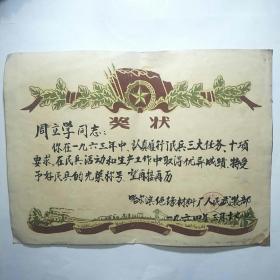 奖状
周立学同志：
你在一九六三年中，认真履行了民兵三大任务、十项
要求，在民兵活动和生产工作中取得优异成绩，特授
予好民兵的光荣称号，望再接再厉
哈尔滨绝缘材料厂人民武装部
一九六四年三月